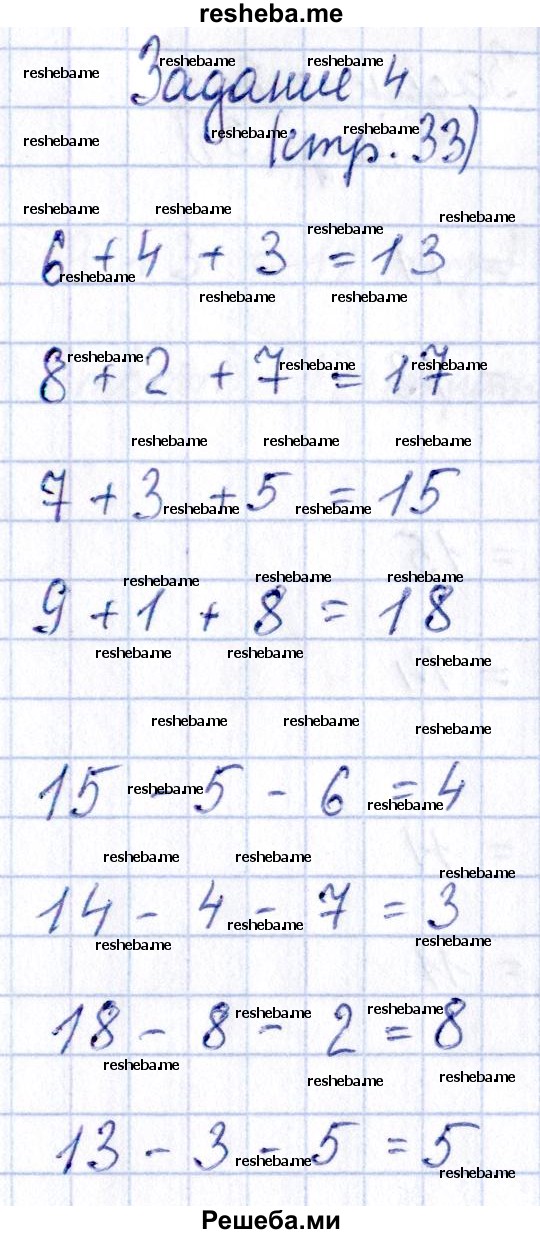 resheba.me
Задание 4
(стр. 33)
6 + 4 + 3 = 13
8 + 2 + 7 = 17
7 + 3 + 5 = 15
9 + 1 + 8 = 18
15 - 5 - 6 = 4
14 - 4 - 7 = 3
18 - 8 - 2 = 8
13 - 3 - 5 = 5
Решеба.ми